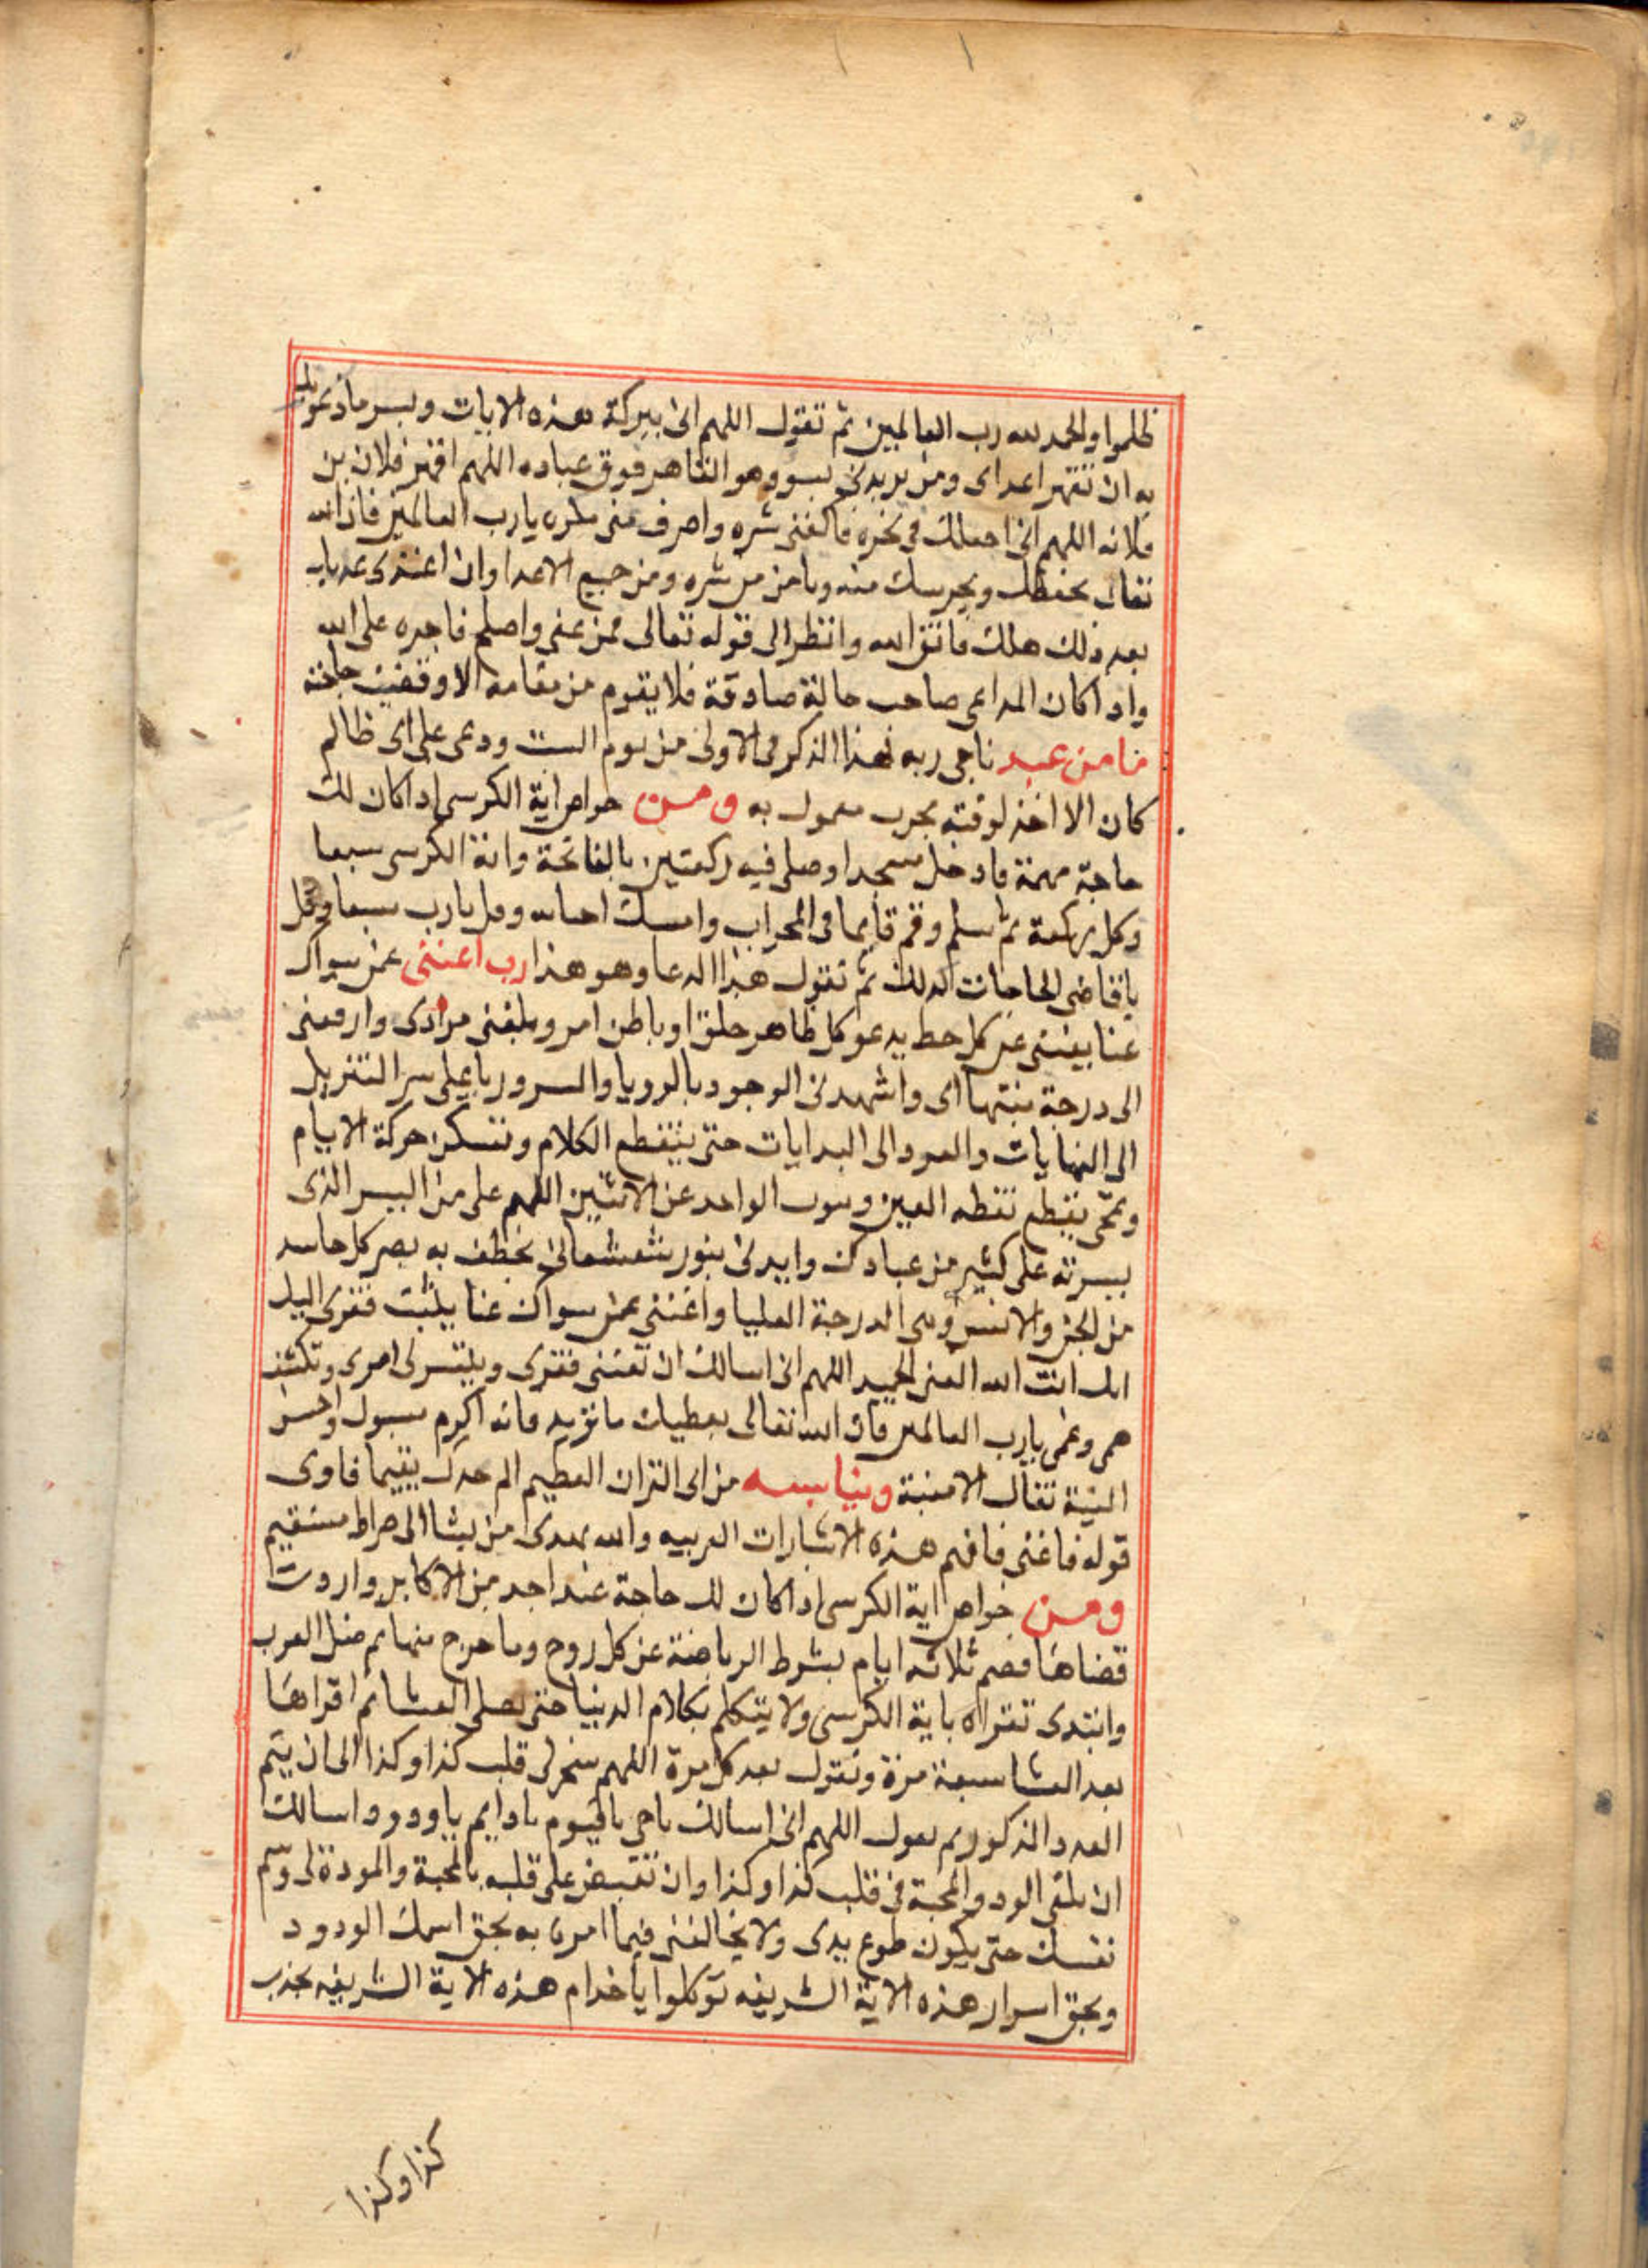 ظلموا والحمد لله رب العالمين ثم تقول اللهم انى ببركة هذه الايات وبسر ما دعوتك
به ان تقهر اعداى ومن يريدنى بسو وهو القاهر فوق عباده اللهم اقهر فلان بن
فلانه اللهم انى اجعلك فى نحره فاكفنى شره واصرف عنى مكره يارب العالمين فان الله
تعالى يحفظك ويحرسك منه وتامن من شره ومن جميع الاعدا وان اعتدى عدياب
بعد ذلك هلك فاتق الله وانظر الى قوله تعالى فمن عفى واصلح فاجره على الله
واذا كان الداعى صاحب حالة صادقة فلا يقوم من مقامه الا وقضيت حاجته
ما من عبد ناجى ربه بهذا الذكر فى الاولى من يوم السبت ودعى على اى ظالم
كان الا اخذ لوقته مجرب معمول به ومن خواص اية الكرسى اذا كان لك
حاجة مهمة فادخل مسجدا وصلى فيه ركعتين بالفاتحة واية الكرسى سبعا
وكل ركعة ثم سلم وقم قايما فى المحراب وامسك وقل يارب سبعا وقل
يا قاضى الحاجات كذلك ثم تقول هذا الدعا وهو هذا رب اغننى عمن سواك
غنا يغننى عن كل حظ يدعو كل ظاهر خلق او باطن امر وبلغنى مرادى وارفعنى
الى درجة منتهاى واشهدنى الوجود بالرويا والسرور يا على سر التنزيل
الى النهايات والعود الى البدايات حتى ينقطع الكلام وتسكن حركة الايام
وتمحى نقطه العين الواحد عن الاثنين اللهم على من اليسر الذى
يسرته على كثير من عبادك وايدنى بنور شعشعانى يخطف به بصر كل حاسد
من الجن والانس الدرجة العليا واغننى عمن سواك غنا يثبت فقرى اليك
انك انت الله الغنى الحميد اللهم انى اسالك ان تغننى فقرى وتيسر لى امرى وتكشف
همى وغمى يارب العالمين فان الله تعالى يعطيك ما تريد فانه اكرم مسول واحسن
النية تنال الامنية ويناسبه من اى القران العظيم الم يجدك يتيما فاوى
قوله فاغنى فافهم هذه الاشارات والله يهدى من يشا الى صراط مستقيم
ومن خواص اية الكرسى اذا كان لك حاجة عند احد من الاكابر واردت
قضاها فصم ثلاثه ايام بشرط الرياضة عن كل روح وما خرج منها ثم صلى المغرب
وابتدى تقراه باية الكرسى ولا يتكلم بكلام الدنيا حتى يصلى العشا ثم اقراها
بعد العشا سبعة مرة وتقول بعد كل مرة اللهم سخر لى قلب كذا وكذا الى ان يتم
العدد المذكور ثم تقول اللهم انى اسالك ياحى ياقيوم يادايم ياودود اسالك
ان تلقى الود والمحبة فى قلب كذا وكذا وان تقبض على قلبه بالمحبة والمودة لى وتسم
نفسك حتى يكون طوع يدى ولا يخالفنى فيما امرت به بحق اسمك الودود
وبحق اسرار هذه الاية الشريفه توكلوا يا خدام هذه الاية الشريفه بجذب
كذا وكذا